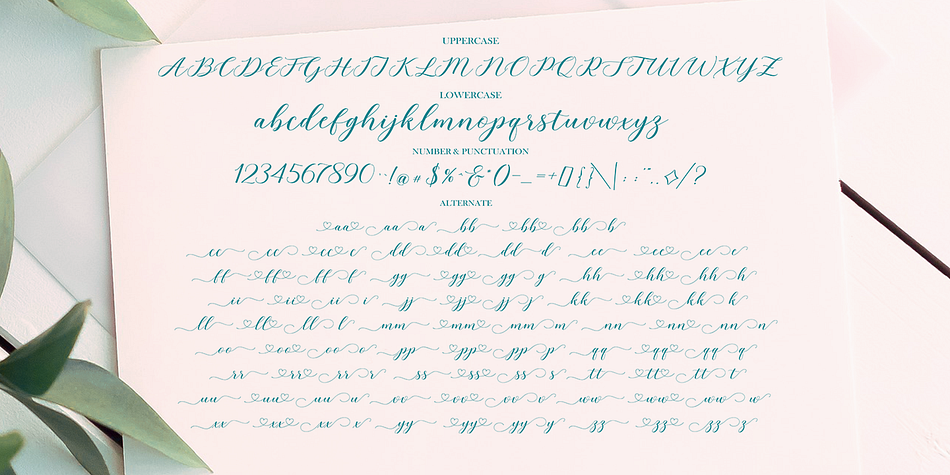 UPPERCASE
ABCDEFGHIJKLMNOPQRSTUVWXYZ
LOWERCASE
abcdefghijklmnopqrstuvwxyz
NUMBER & PUNCTUATION
1234567890 !@#$%^&*()-_=+[]{}\|:;"'.,<>/?
ALTERNATE
aa aa a bb bb bb b
cc cc cc c dd dd dd d ee ee ee e
ff ff ff f gg gg gg g hh hh hh h
ii ii ii i jj jj jj j kk kk kk k
ll ll ll l mm mm mm m nn nn nn n
oo oo oo o pp pp pp p qq qq qq q
rr rr rr r ss ss ss s tt tt tt t
uu uu uu u vv vv vv v ww ww ww w
xx xx xx x yy yy yy y zz zz zz z